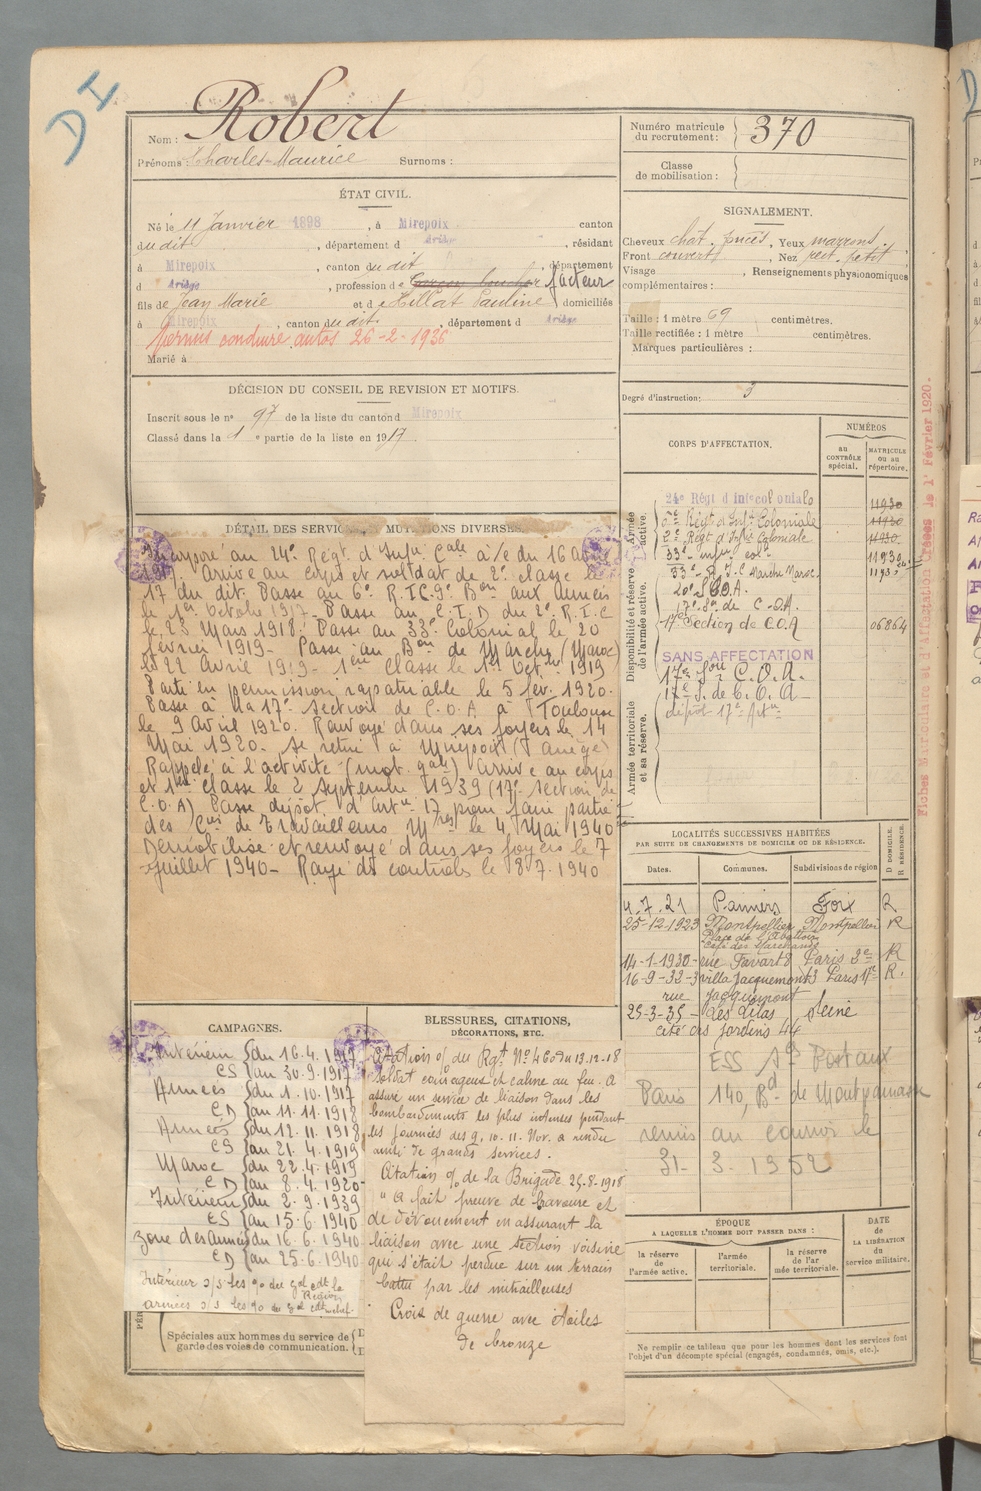 DI
Nom : Robert
Prénoms : Charles-Maurice Surnoms :
ÉTAT CIVIL.
Né le 11 Janvier 1898, à Mirepoix canton
du dit, département d Ariège, résidant
à Mirepoix, canton du dit, département
d Ariège, profession de Garçon boucher facteur
fils de Jean Marie et de Hillat Pauline domiciliés
à Mirepoix, canton du dit, département d Ariège
Permis conduire autos 26-2-1936
Marié à
DÉCISION DU CONSEIL DE REVISION ET MOTIFS.
Inscrit sous le n° 97 de la liste du canton d Mirepoix
Classé dans la 1e partie de la liste en 1917.
DÉTAIL DES SERVICES MUTATIONS DIVERSES.
Incorporé au 24e Régt d'Infie Cale a/c du 16 avril
1917. Arrivé au corps et soldat de 2e classe le
17 du dit. Passé au 6e R.I.C. 9e Bon aux armées
le 1er Octobre 1917 - Passé au C.I.D du 2e R.I.C
le 23 Mars 1918. Passé au 33e Colonial le 20
février 1919 - Passé au Bon de Marche (Maroc)
le 22 Avril 1919 - 1ère Classe le 1er Octbre 1919
Parti en permission rapatriable le 5 fév. 1920.
Passé à la 17e Section de C.O.A à Toulouse
le 9 Avril 1920. Renvoyé dans ses foyers le 14
Mai 1920. se retire à Mirepoix (Ariège)
Rappelé à l'activité (mob. gale) Arrivé au corps
et 1ère classe le 2 septembre 1939 (17e section de
C.O.A) Passé dépôt d'Artie 17 pour faire partie
des Cies de Travailleurs Mres le 4 Mai 1940
Démobilisé et renvoyé dans ses foyers le 7
juillet 1940 - Rayé des contrôles le 8.7.1940
CAMPAGNES.
Intérieur du 16.4.1917
CS au 30.9.1917
Armées du 1.10.1917
CD au 11.11.1918
Armées du 12.11.1918
CS au 21.4.1919
Maroc du 22.4.1919
CD au 8.4.1920
Intérieur du 2.9.1939
CS au 15.6.1940
zone des armées du 16.6.1940
CD au 25.6.1940
Intérieur s/s les % du gal cdt la Région
armées s/s les % du gal cdt en chef.
Spéciales aux hommes du service de
garde des voies de communication.
BLESSURES, CITATIONS,
DÉCORATIONS, ETC.
Citation % du Rgt N° 460 du 13-12-18
soldat courageux et calme au feu. A
assuré un service de liaison dans les
bombardements les plus intenses pendant
les journées des 9, 10, 11 Nov. a rendu
ainsi de grands services.
Citation % de la Brigade 25-8-1918
" A fait preuve de bravoure et
de dévouement en assurant la
liaison avec une section voisine
qui s'était perdue sur un terrain
battu par les mitrailleuses
Croix de guerre avec étoiles
de bronze
Numéro matricule
du recrutement : 370
Classe
de mobilisation :
SIGNALEMENT.
Cheveux chat. foncés, Yeux marrons
Front couvert, Nez rect. petit
Visage , Renseignements physionomiques
complémentaires :
Taille : 1 mètre 69 centimètres.
Taille rectifiée : 1 mètre centimètres.
Marques particulières :
Degré d'instruction : 3
CORPS D'AFFECTATION.
NUMÉROS
au
CONTRÔLE
spécial.
MATRICULE
ou au
répertoire.
Disponibilité et réserve de l'armée active.
Armée active.
Armée territoriale et sa réserve.
24e Régt d'Infie coloniale 11930
Régt d'Infie Coloniale 11930
2e Régt d'Infie Coloniale 11930
33e infie col 11930
33e R.I.C Marche Maroc. 1193
20e S C.O.A.
17e Son de C.O.A.
17e Section de C.O.A 06864
SANS AFFECTATION
17e Son C.O.A.
17e S. de C.O.A -
dépôt 17e Artie
LOCALITÉS SUCCESSIVES HABITÉES
PAR SUITE DE CHANGEMENTS DE DOMICILE OU DE RÉSIDENCE.
Dates. Communes. Subdivisions de région D DOMICILE. R RÉSIDENCE.
4.7.21 Pamiers Foix R
25-12-1923 Montpellier Montpellier R
Place de l'Abattoir
Café des Marchands
14-1-1930 rue Favart 8 Paris 2e R
16-9-32 3 villa Jacquemont 3 Paris 17e R.
rue Jacquemont
25-3-35 Les Lilas Seine
cité des Jardins 44
ESS des Postaux
Paris 140, Bd de Montparnasse
remis au courrier le
31. 3. 1952
ÉPOQUE
A LAQUELLE L'HOMME DOIT PASSER DANS :
la réserve
de l'armée active.
l'armée
territoriale.
la réserve
de l'ar
mée territoriale.
DATE
de
LA LIBÉRATION
du
service militaire.
Ne remplir ce tableau que pour les hommes dont les services font
l'objet d'un décompte spécial (engagés, condamnés, omis, etc.).
Fiches Matriculaire et d'Affectation créées le 1r Février 1920.